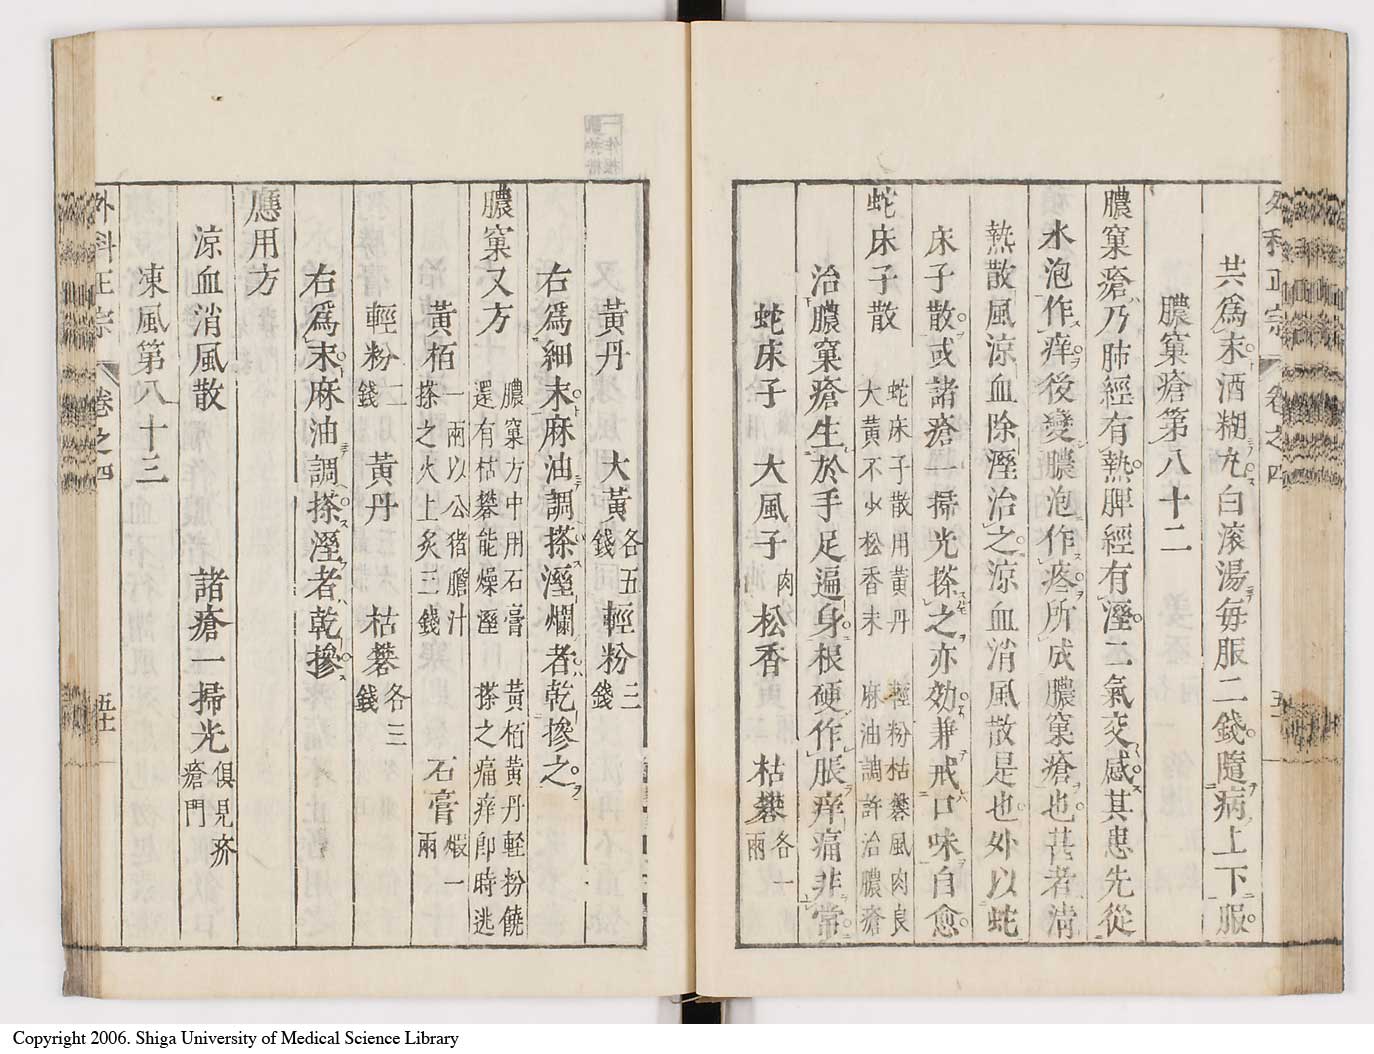 外科正宗 卷之四
共爲末酒糊丸白滚湯每服二錢隨病上下服
膿窠瘡第八十二
膿窠瘡乃肺經有熱脾經有溼二氣交感其患先從
水泡作痒後變膿泡作疼所成膿窠瘡也甚者清
熱散風涼血除溼治之涼血消風散是也外以蛇
床子散或諸瘡一掃光搽之亦効兼戒口味自愈
蛇床子散 蛇床子散用黃丹 輕粉枯礬風肉良
大黃不少松香末 麻油調許治膿瘡
治膿窠瘡生於手足遍身根硬作脹痒痛非常
蛇床子 大風子肉 松香 枯礬各一兩
黃丹 大黃各五錢 輕粉三錢
右爲細末麻油調搽溼爛者乾摻之
膿窠又方 膿窠方中用石膏 黃栢黃丹軽扮饒
還有枯礬能燥溼 搽之痛痒卽時逃
黃栢一兩以公猪膽汁搽之火上炙三錢 石膏煅一兩
輕粉二錢 黃丹 枯礬各三錢
右爲末麻油調搽溼者乾摻
應用方
涼血消風散 諸瘡一掃光俱見疥瘡門
凍風第八十三
外科正宗 卷之四 五十
Copyright 2006. Shiga University of Medical Science Library